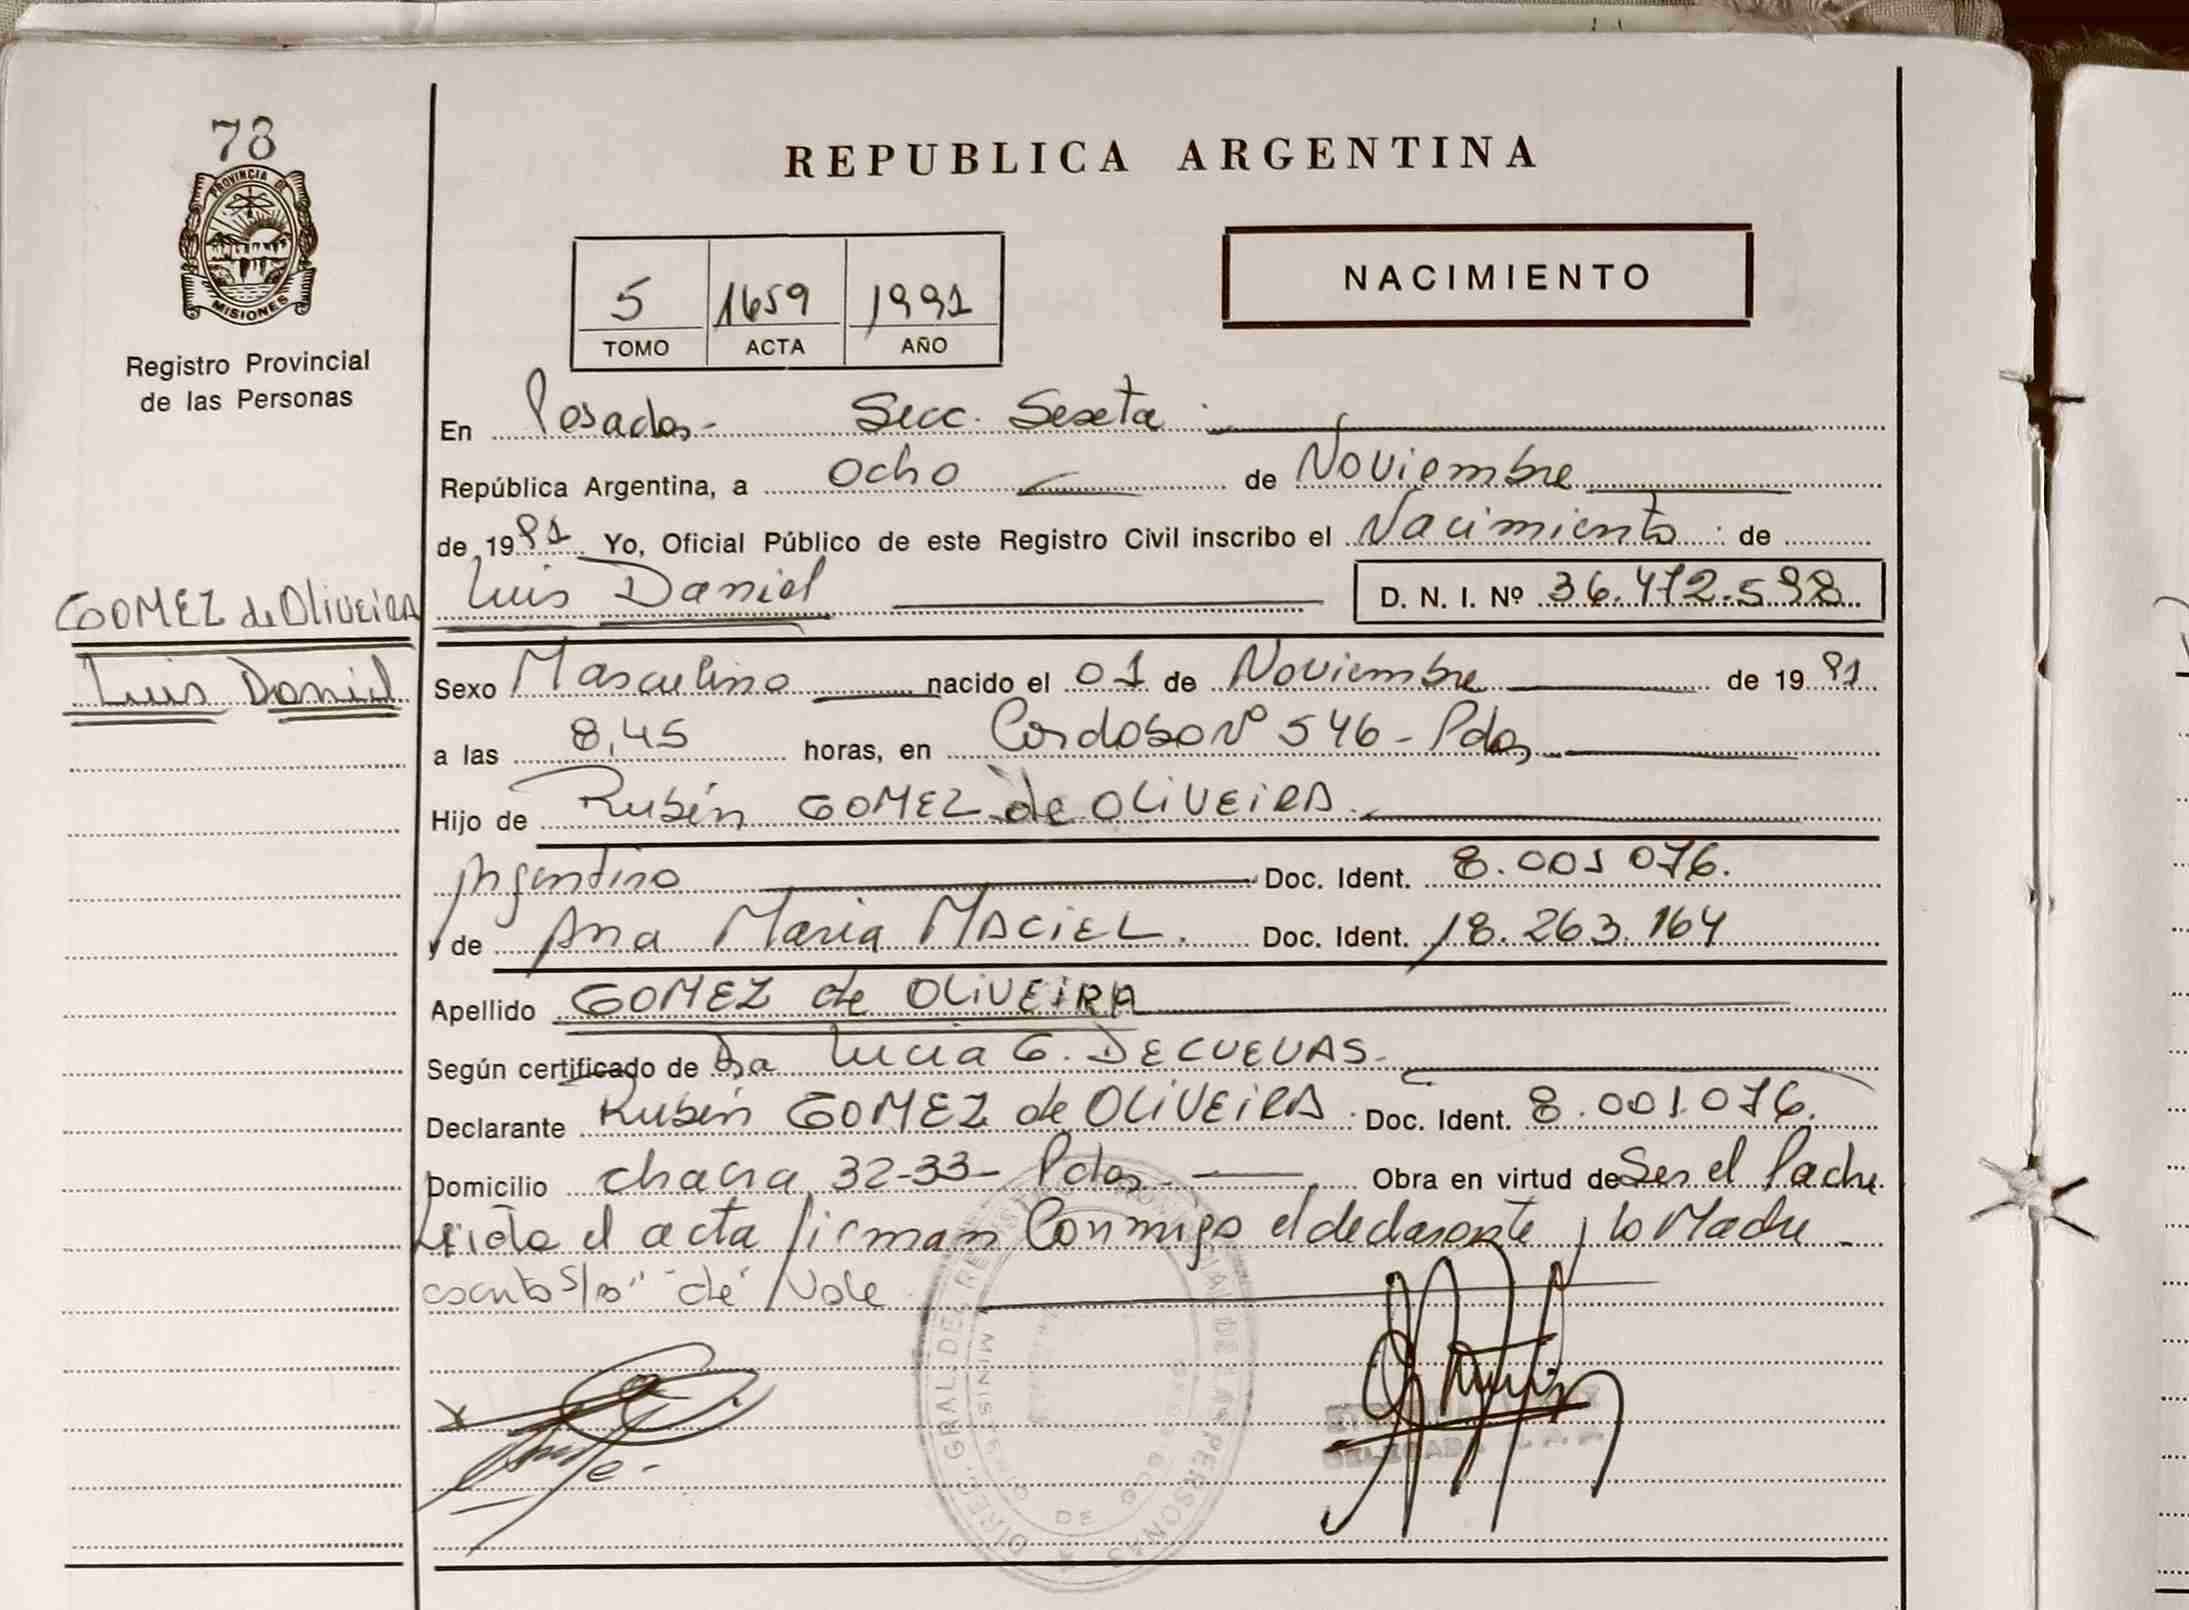 78
PROVINCIA DE
MISIONES
Registro Provincial
de las Personas
REPUBLICA ARGENTINA
5 1659 1991
TOMO ACTA AÑO
NACIMIENTO
En Posadas- Secc. Sexta
República Argentina, a ocho de Noviembre
de 1991 Yo, Oficial Público de este Registro Civil inscribo el Nacimiento de
Luis Daniel D. N. I. Nº 36.472.598
GOMEZ de OLiVEiRA
Luis Daniel
Sexo Masculino nacido el 01 de Noviembre de 1991
a las 8,45 horas, en Cordoba Nº 546 - Pdas
Hijo de Rubén GOMEZ de OLiVEiRA
Argentino Doc. Ident. 8.001 076.
y de Ana Maria MACiEL. Doc. Ident. 18.263.164
Apellido GOMEZ de OLiVEiRA
Según certificado de Dra Lucia G. DECUEVAS-
Declarante Rubén GOMEZ de OLiVEiRA Doc. Ident. 8.001.076.
Domicilio chacra 32-33- Pdas Obra en virtud de Ser el Padre
Leida el acta firman Conmigo el declarante y la Madre
"de" Vale
DIREC. GRAL. DEL REGISTRO PROVINCIAL DE LAS PERSONAS